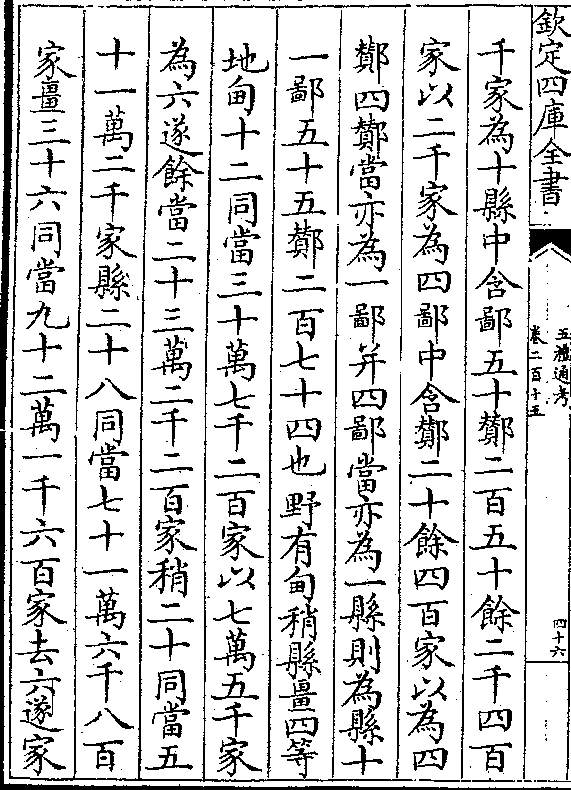 欽定四庫全書
五禮通考
卷二百十五
四十六
千家為十縣中含鄙五十酇二百五十餘二千四百
家以二千家為四鄙中含酇二十餘四百家以為四
酇四酇當亦為一鄙并四鄙當亦為一縣則為縣十
一鄙五十五酇二百七十四也野有甸稍縣畺四等
地甸十二同當三十萬七千二百家以七萬五千家
為六遂餘當二十三萬二千二百家稍二十同當五
十一萬二千家縣二十八同當七十一萬六千八百
家畺三十六同當九十二萬一千六百家去六遂家